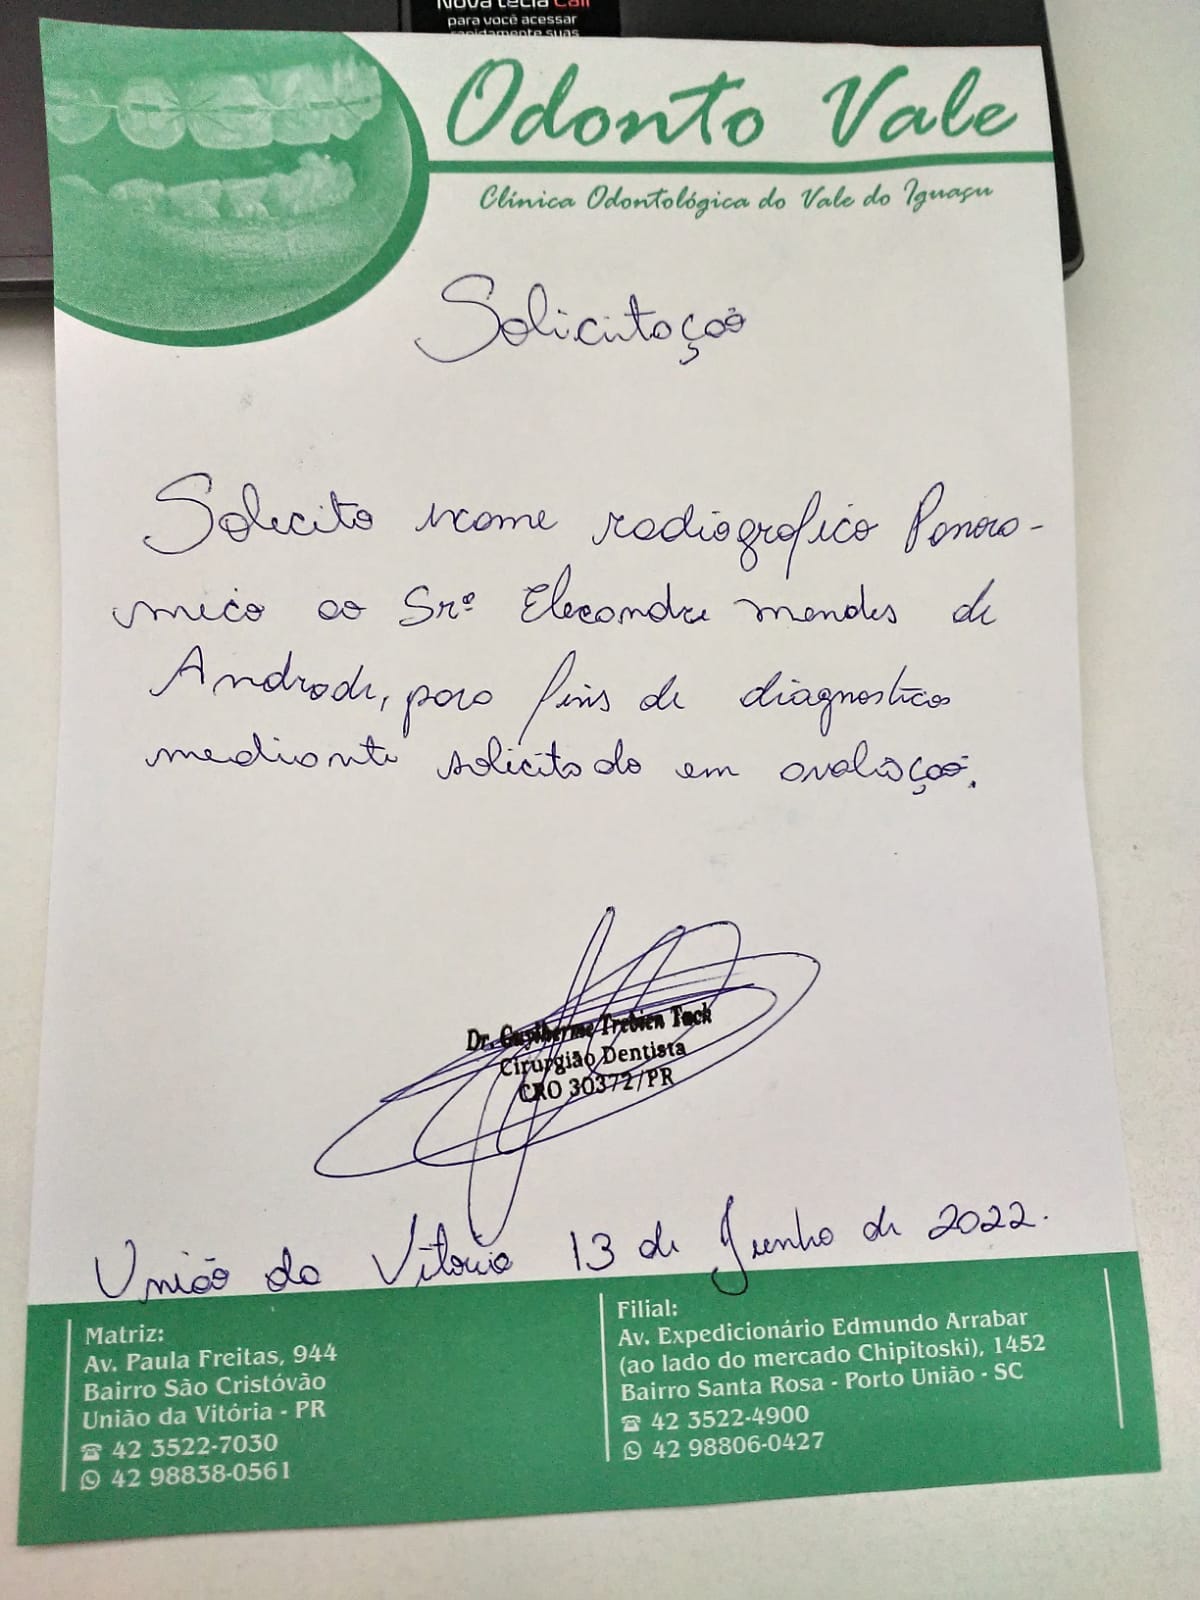 Nova tecla Call
para você acessar
rapidamente suas
Odonto Vale
Clínica Odontológica do Vale do Iguaçu
Solicitação
Solicito exame radiográfico Panora-
mico ao Srº Elexandre mendes de
Andrade, para fins de diagnosticos
mediante solicitado em avaliação.
Dr. Guylherme Trebien Tack
Cirurgião Dentista
CRO 30372/PR
União da Vitoria 13 de Junho de 2022.
Matriz:
Av. Paula Freitas, 944
Bairro São Cristóvão
União da Vitória - PR
42 3522-7030
42 98838-0561
Filial:
Av. Expedicionário Edmundo Arrabar
(ao lado do mercado Chipitoski), 1452
Bairro Santa Rosa - Porto União - SC
42 3522-4900
42 98806-0427